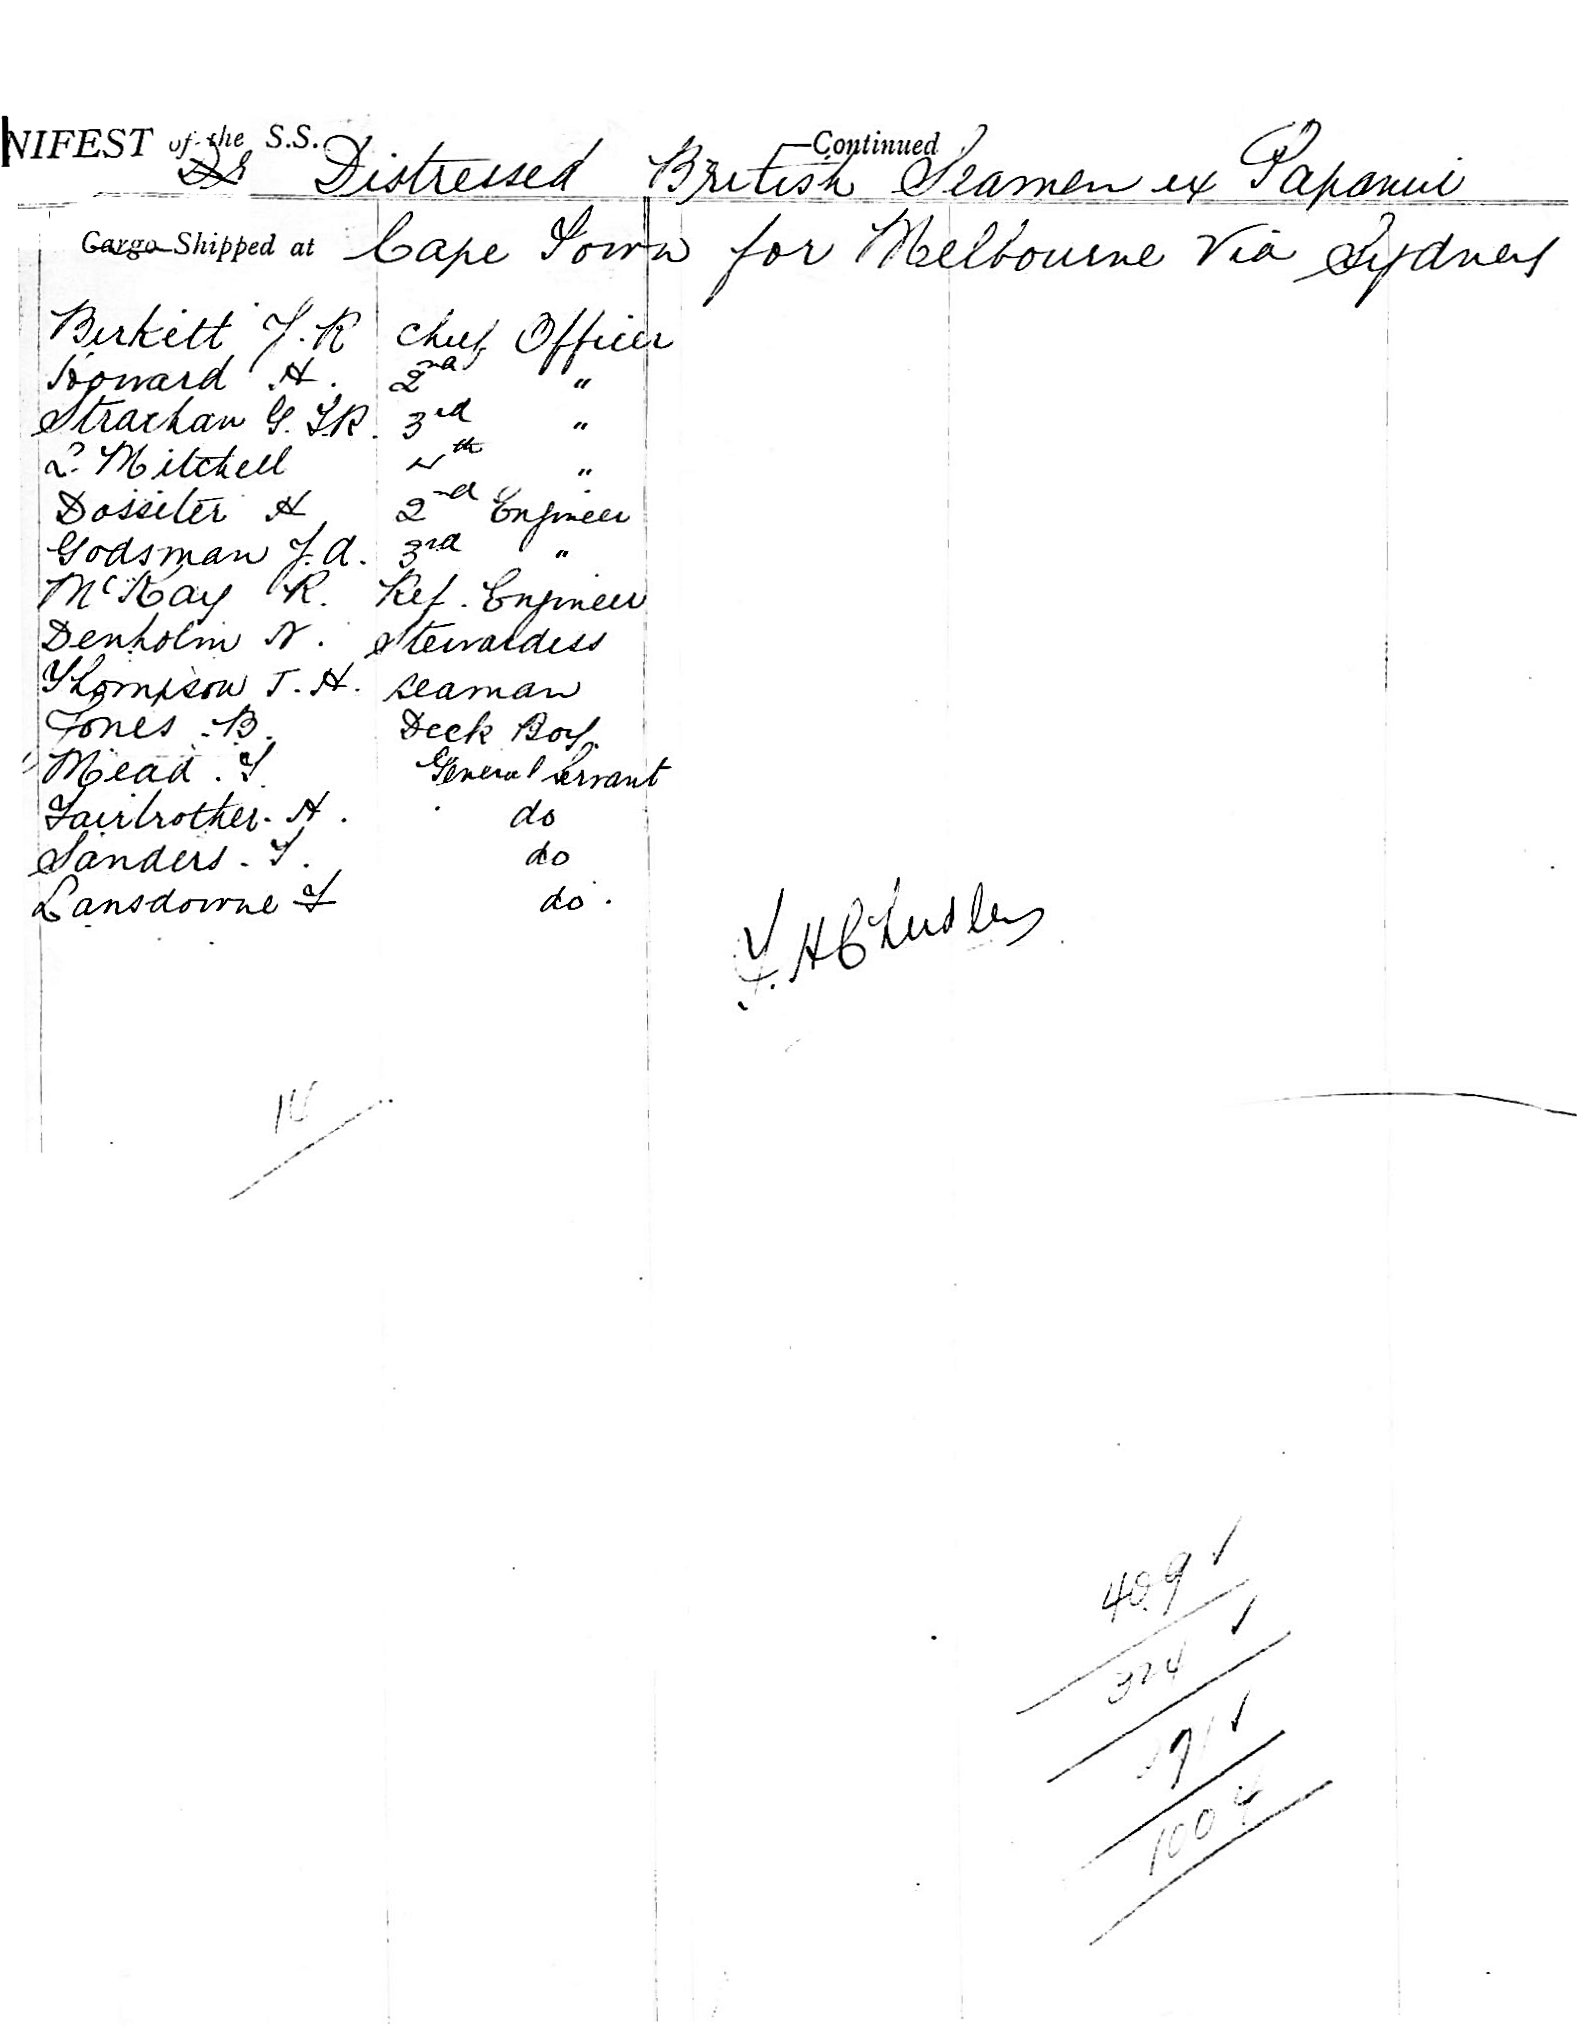 NIFEST of the S.S. Continued
Distressed British Seamen ex Papanui
Cargo Shipped at Cape Town for Melbourne Via Sydney
Birkett J. R Chief Officer
Howard H. 2nd "
Strachan G. 3rd "
Mitchell 4th "
Dossiter H 2nd Engineer
Godsman J. A. 3rd "
McKay R. Ref. Engineer
Denholm N. Stewardess
Thompson T. H. seaman
Jones. B. Deck Boy.
Mead. General Servant
Fairbrother. A. do
Sanders. do
Lansdowne do.
H Chudley
409 ✓
324 ✓
1004